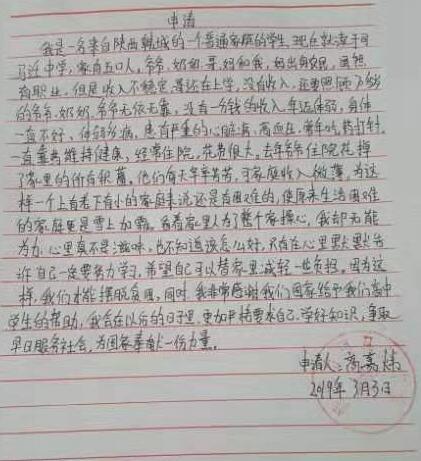 申请
我是一名来自陕西韩城的一个普通家庭的学生,现在就读于司
马迁中学,家有五口人,爷爷、奶奶、哥、妈和我,妈出有
有职业,但是收入不稳定,哥还在上学,没有收入,还要照顾万多岁
的爷爷、奶奶,爷爷无依无靠,没有一分钱的收入,年迈体弱,身体
一直不好,体弱多病,患有严重的心脏病,高血压,常年吃药打针,
一直靠药维持健康,经常住院,花费很大。去年爷爷住院花掉
了家里的所有积蓄。他们每天辛辛苦苦,可家庭收入微薄,为这
样一个上有老下有小的家庭来说还是有困难的,使原来生活困难
的家庭更是雪上加霜。看着家里人为了整个家操心,我却无能
为力,心里真不是滋味,也不知道该怎么好,只有在心里默默告
诉自己一定要努力学习,希望自己可以替家里减轻一些负担。因为这
样,我们才能摆脱贫困,同时,我非常感谢我们国家给予我们高中
学生的帮助,我会在以后的日子里,更加严格要求自己,学好知识,争取
早日服务社会,为国家奉献一份力量。
申请人:高嘉炜
2019年3月3日